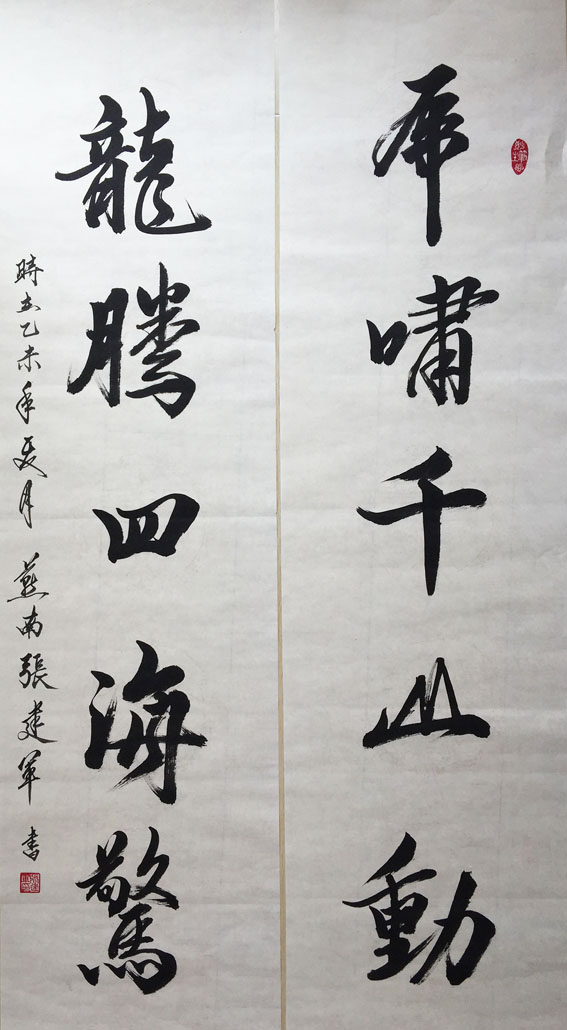 虎嘯千山動
龍騰四海驚
時在乙未年夏月 燕南張建軍 書